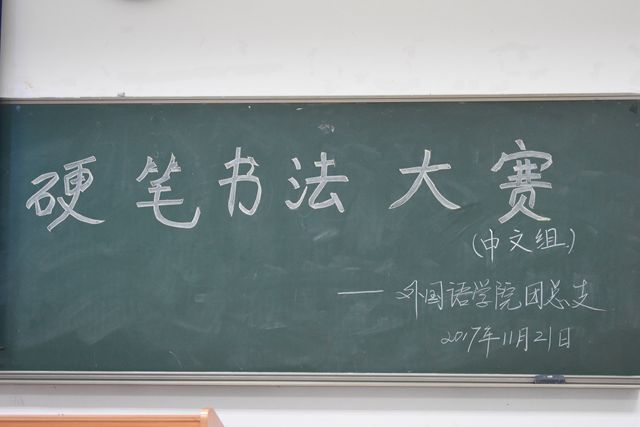 硬笔书法大赛
(中文组)
——外国语学院团总支
2017年11月21日